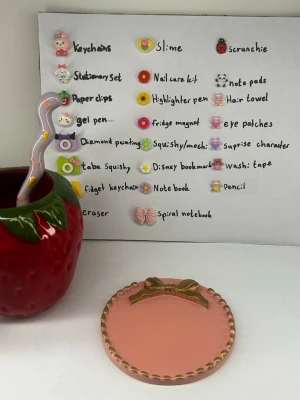 Keychains
Stationary Set
Paper clips
gel pen
Diamond painting
taba squishy
fidget keychain
eraser
Slime
Nail care kit
Highlighter pen
fridge magnet
Squishy/mochi
Disney bookmark
Note book
Spiral notebook
Scrunchie
note pads
Hair towel
eye patches
Suprise character
Washi tape
Pencil